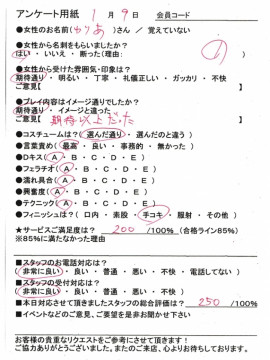 アンケート用紙 1月9日 会員コード
●女性のお名前(かりあ)さん / 覚えていない
●女性から名刺をもらいましたか?
はい・いいえ・断った(理由: )
●女性から受けた雰囲気・印象は?
期待通り・明るい・丁寧・礼儀正しい・ガッカリ・不快
ご意見【 】
●プレイ内容はイメージ通りでしたか?
期待通り・イメージと違った
ご意見【期待以上だった 】
●コスチュームは?(選んだ通り・選んだのと違う)
●言葉責め(最高・良い・事務的・無かった)
●Dキス(A・B・C・D・E)
●フェラチオ(A・B・C・D・E)
●濡れ具合(A・B・C・D・E)
●興奮度(A・B・C・D・E)
●テクニック(A・B・C・D・E)
●フィニッシュは?(口内・素股・手コキ・服射・その他)
★サービスご満足度は? 200 /100%(合格ライン85%)
※85%に満たなかった理由
■スタッフのお電話対応は?
(非常に良い・良い・普通・悪い・不快・電話してない)
■スタッフの受付対応は?
(非常に良い・良い・普通・悪い・不快)
■本日対応させて頂きましたスタッフの総合評価は? 250 /100%
■イベントなどのご意見、ご要望を是非お聞かせ下さい。
お客様の貴重なリクエストをご参考にさせて頂きます!
ご協力ありがとうございました。またのご来店、心よりお待ちしております。